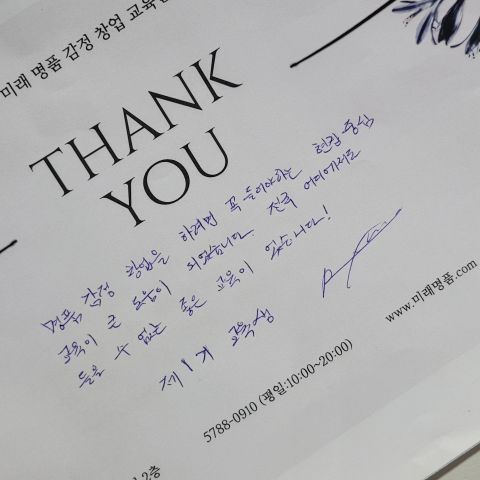 미래 명품 감정 창업 교육
THANK
YOU
명품 감정 창업을 하려면 꼭 들어야하는 현장 중심
교육이 큰 도움이 되었습니다. 전국 어디에서도
들을 수 없는 좋은 교육이 었습니다!
제 1기 교육생
www.미래명품.com
5788-0910 (평일:10:00~20:00)
2층